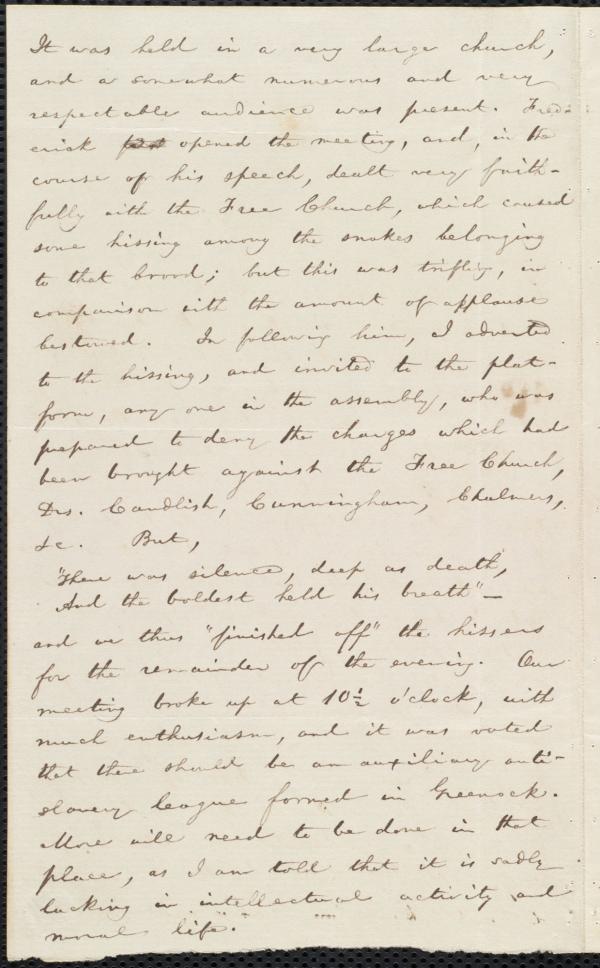 It was held in a very large church,
and a somewhat numerous and very
respectable audience was present. Fred-
erick opened the meeting, and, in the
course of his speech, dealt very faith-
fully with the Free Church, which caused
some hissing among the snakes belonging
to that brood; but this was trifling, in
comparison with the amount of applause
bestowed. In following him, I adverted
to the hissing, and invited to the plat-
form, any one in the assembly, who was
prepared to deny the charges which had
been brought against the Free Church,
Drs. Candlish, Cunningham, Chalmers,
&c. But,
"There was silence, deep as death,
And the boldest held his breath"—
and we thus "finished off" the hissers
for the remainder of the evening. Our
meeting broke up at 10½ o'clock, with
much enthusiasm, and it was voted
that there should be an auxiliary anti-
slavery league formed in Greenock.
More will need to be done in that
place, as I am told that it is sadly
lacking in intellectual activity and
moral life.